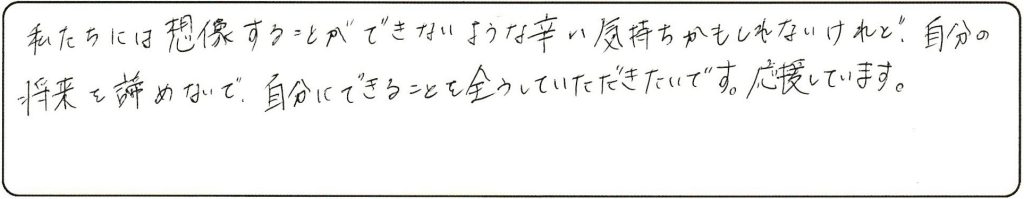 私たちには想像することができないような辛い気持ちかもしれないけれど、自分の
将来を諦めないで、自分にできることを全うしていただきたいです。応援しています。